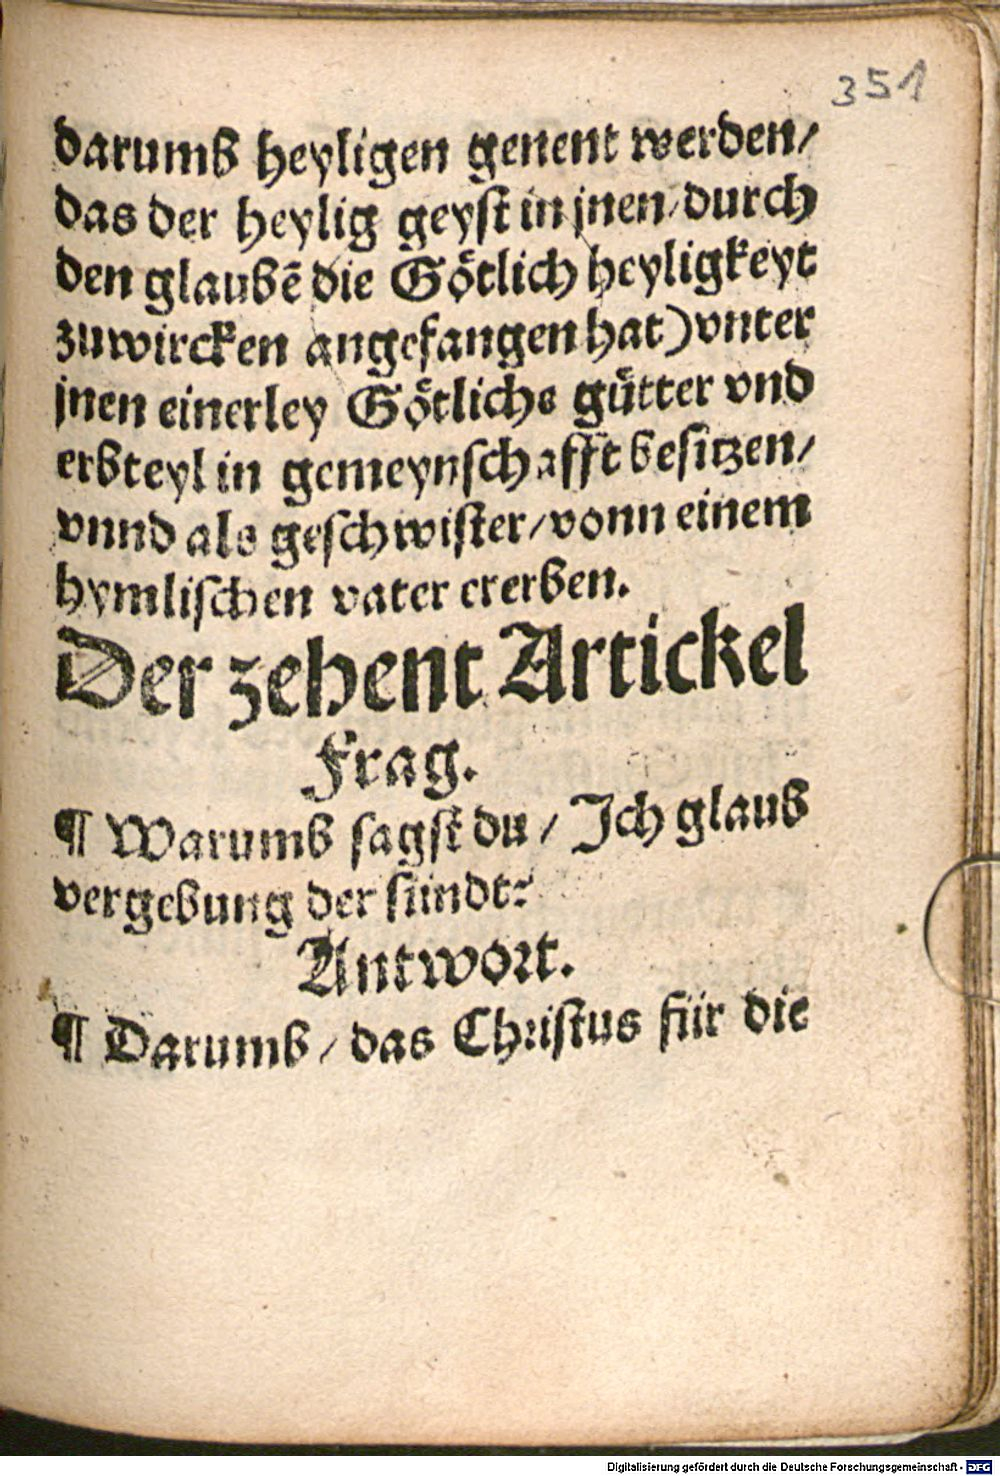 351
darumb heyligen genent werden/
das der heylig geyst in jnen/durch
den glaubẽ die Götlich heyligkeyt
zuwircken angefangen hat) vnter
jnen einerley Götliche gütter vnd
erbteyl in gemeynschafft besitzen/
vnnd als geschwister/vonn einem
hymlischen vater ererben.
Der zehent Artickel
Frag.
¶ Warumb sagst du / Ich glaub
vergebung der sündt?
Antwort.
¶ Darumb / das Christus für die
Digitalisierung gefördert durch die Deutsche Forschungsgemeinschaft - DFG